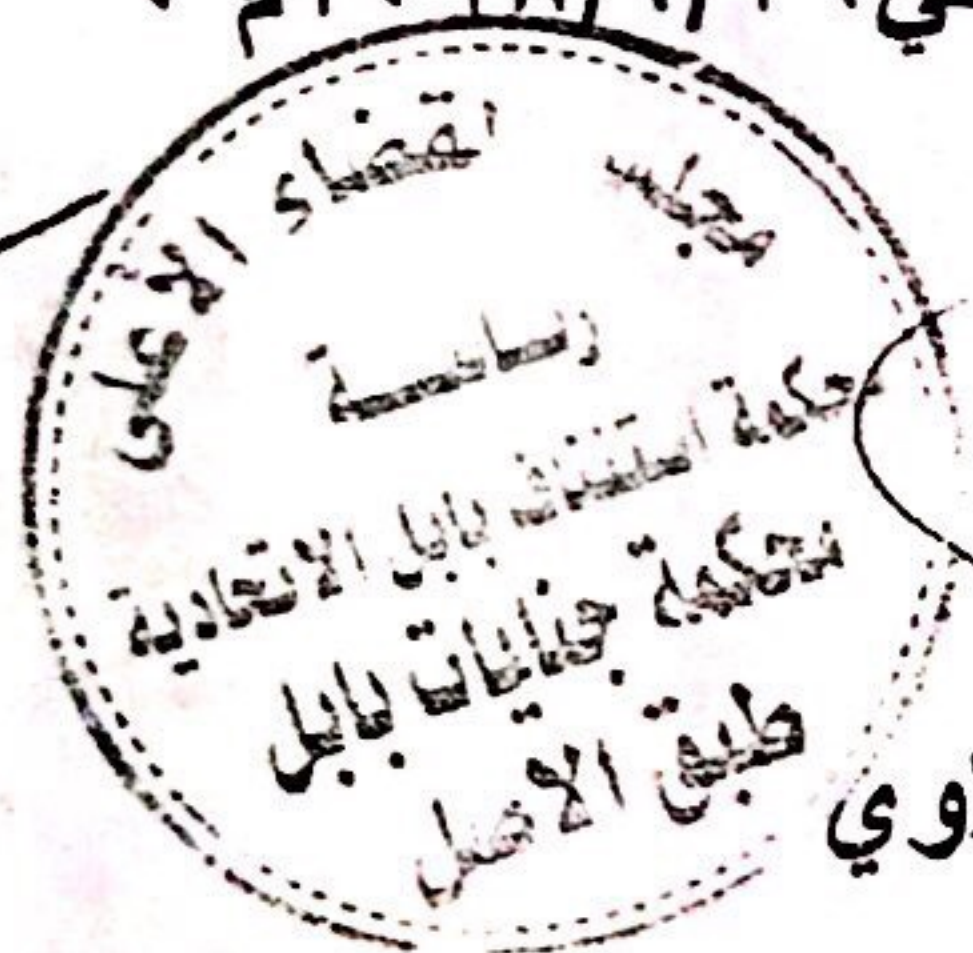 في
م
مجلس القضاء الأعلى
رئاسة
محكمة استئناف بابل الاتحادية
محكمة جنايات بابل
طبق الاصل
وي